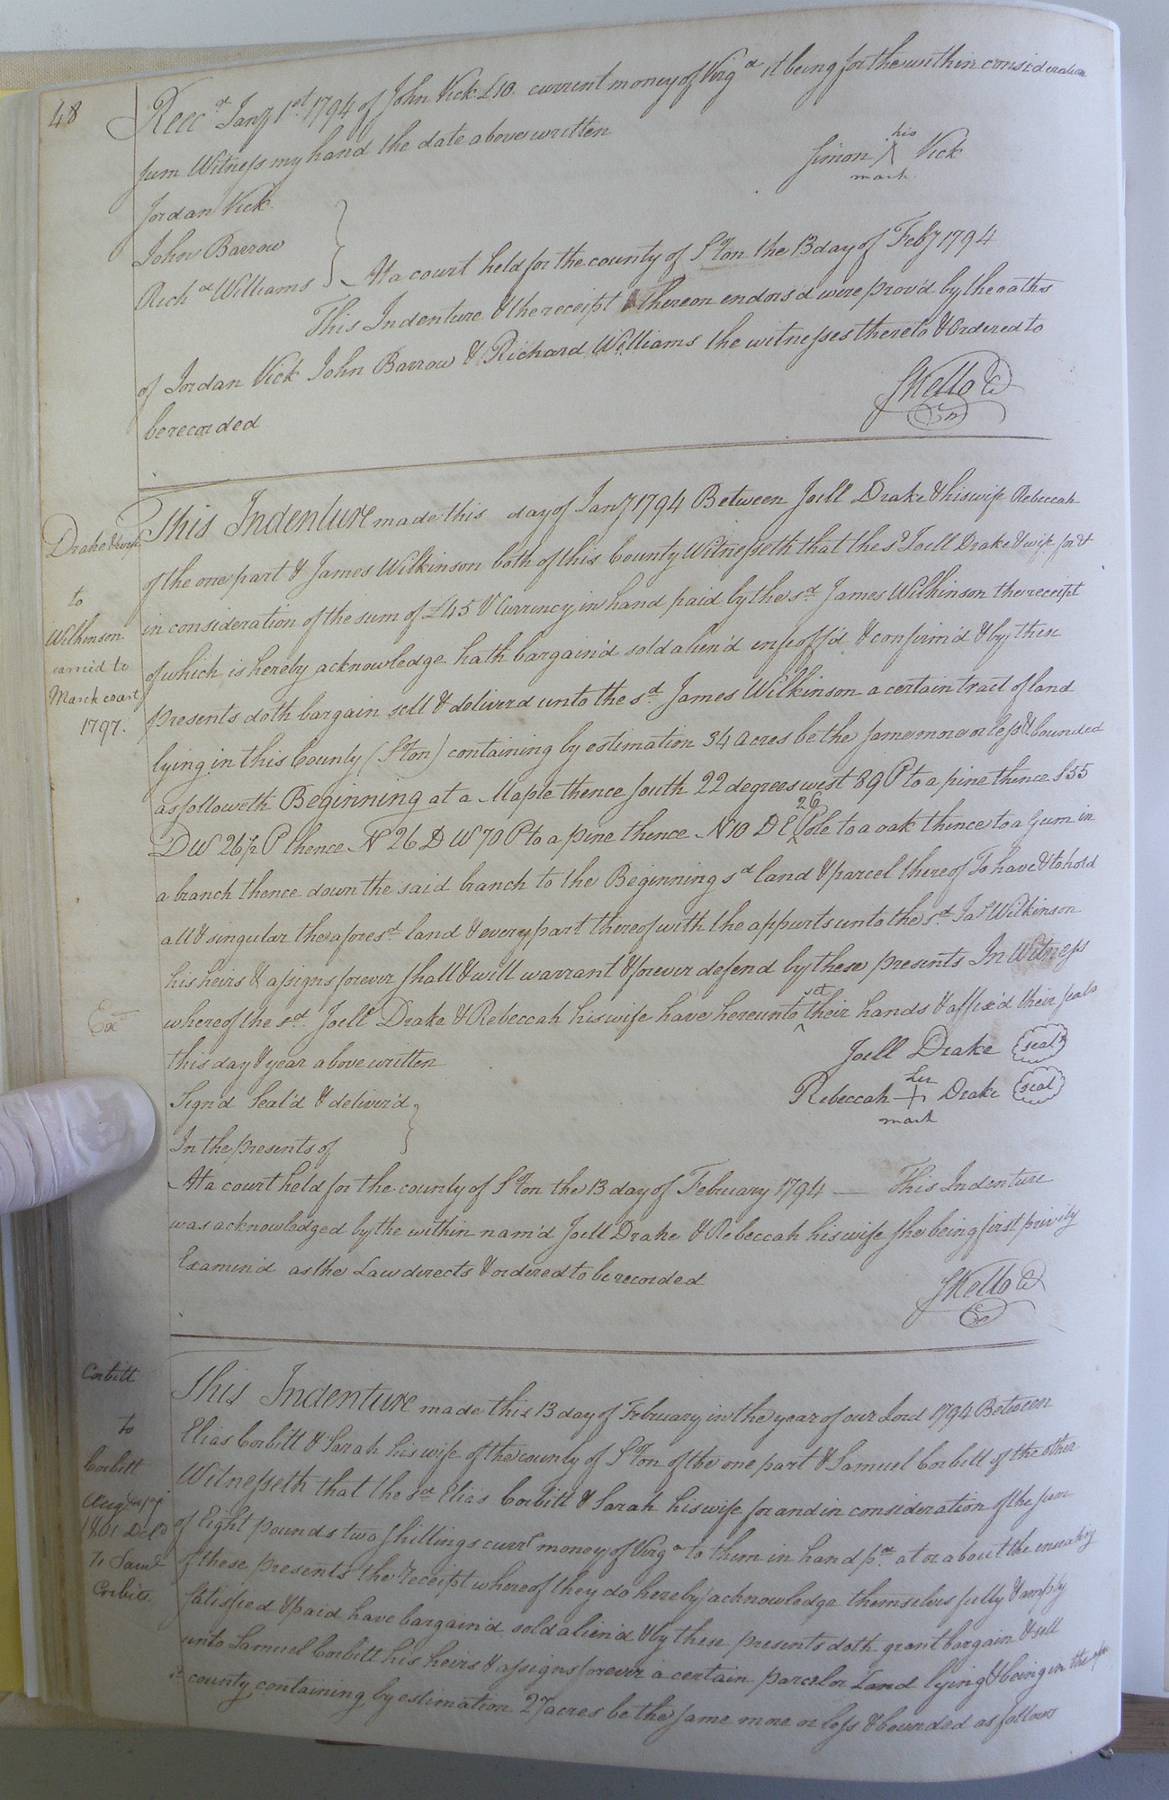 48
Recd Jany 1st 1794 of John Vick £10 current money of Virga it being for the within consideration
sum Witness my hand the date above written
his
Simon Vick
mark
Jordan Vick
John Barrow
Richd Williams } At a court held for the county of S°ton the 13 day of Feby 1794
This Indenture & the receipt thereon endors'd were prov'd by the oaths
of Jordan Vick John Barrow & Richard Williams the witnesses thereto & Ordered to
be recorded
SKello Cl
Drake & wife
to
Wilkinson
carried to
March court
1797.
This Indenture made this day of Jany 1794 Between Joell Drake & his wife Rebeccah
of the one part & James Wilkinson both of this County Witnesseth that the sd Joell Drake & wife for &
in consideration of the sum of £45 V Currency in hand paid by the sd James Wilkinson the receipt
of which is hereby acknowledge hath bargain'd sold alien'd infeoff'd & confirm'd & by these
presents doth bargain sell & deliverd unto the sd James Wilkinson a certain tract of land
lying in this County (S°ton) containing by estimation 34 acres be the same more or less & bounded
as followeth Beginning at a Maple thence south 22 degrees west 89 P to a pine thence S 55
D W 26½ P thence N 26 D W 70 P to a pine thence N 10 D E 26 Pole to a oak thence to a Gum in
a branch thence down the said branch to the Beginning sd land & parcel thereof To have & to hold
all & singular the aforesd land & every part thereof with the appurts unto the sd Jas Wilkinson
his heirs & assigns forever shall & will warrant & forever defend by these presents In Witness
Exd
whereof the sd Joell Drake & Rebeccah his wife have hereunto set their hands & affix'd their seals
this day & year above written
Joell Drake seal
Sign'd Seal'd & deliver'd
her
Rebeccah + Drake seal
mark
In the presents of
At a court held for the county of S°ton the 13 day of February 1794 — This Indenture
was acknowledged by the within nam'd Joell Drake & Rebeccah his wife she being first privily
Examin'd as the Law directs & ordered to be recorded
SKello Cl
Corbitt
to
Corbitt
Augt
1801 Deld
To Saml
Corbitt
This Indenture made this 13 day of February in the year of our Lord 1794 Between
Elias Corbitt & Sarah his wife of the county of S°ton of the one part & Samuel Corbitt of the other
Witnesseth that the sd Elias Corbitt & Sarah his wife for and in consideration of the sum
of Eight pounds two shillings currt money of Virga to them in hand pd at or about the ensealing
of these presents the receipt whereof they do hereby acknowledge themselves fully & amply
satisfied & paid have bargain'd sold alien'd & by these presents doth grant bargain & sell
unto Samuel Corbitt his heirs & assigns forever a certain parcel or Land lying & being in the afore
sd county containing by estimation 27 acres be the same more or less & bounded as follows